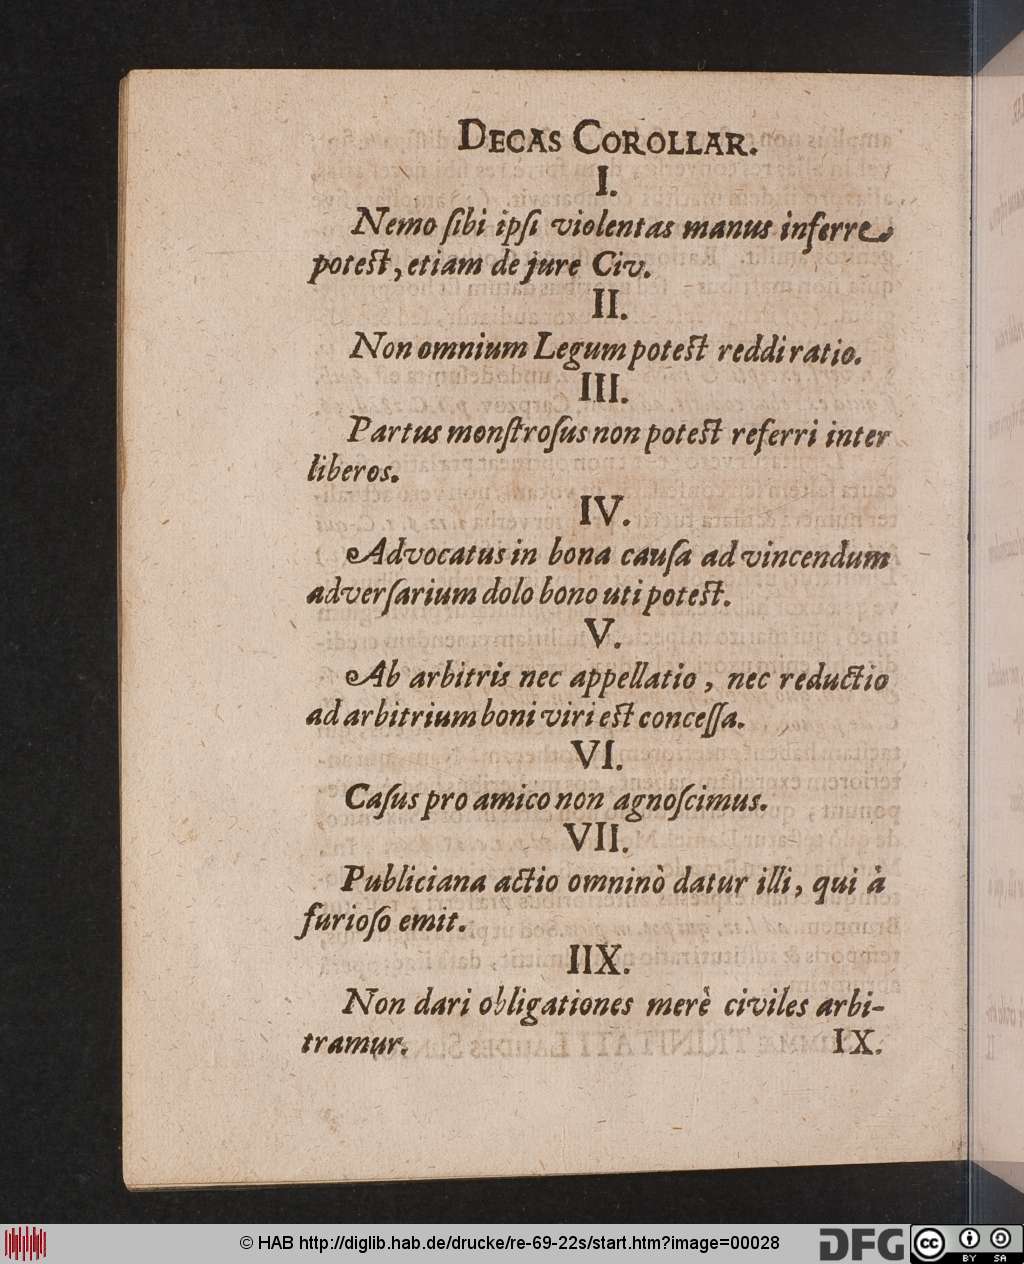 DECAS COROLLAR.
I.
Nemo ſibi ipſi violentas manus inferre
poteſt, etiam de jure Civ.
II.
Non omnium Legum poteſt reddi ratio.
III.
Partus monſtroſus non poteſt referri inter
liberos.
IV.
Advocatus in bona cauſa ad vincendum
adverſarium dolo bono uti poteſt.
V.
Ab arbitris nec appellatio, nec reductio
ad arbitrium boni viri eſt conceſſa.
VI.
Caſus pro amico non agnoſcimus.
VII.
Publiciana actio omninò datur illi, qui à
furioſo emit.
IIX.
Non dari obligationes merè civiles arbi-
tramur. IX.
© HAB http://diglib.hab.de/drucke/re-69-22s/start.htm?image=00028
DFG
cc BY SA